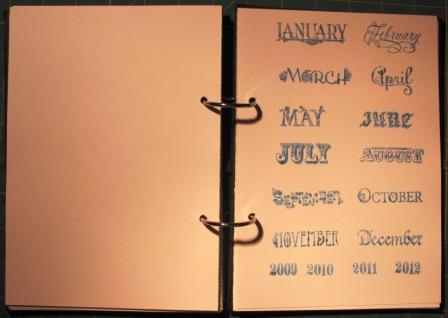 JANUARY February
MARCH April
MAY JUNE
JULY AUGUST
SEPTEMBER OCTOBER
NOVEMBER December
2009 2010 2011 2012